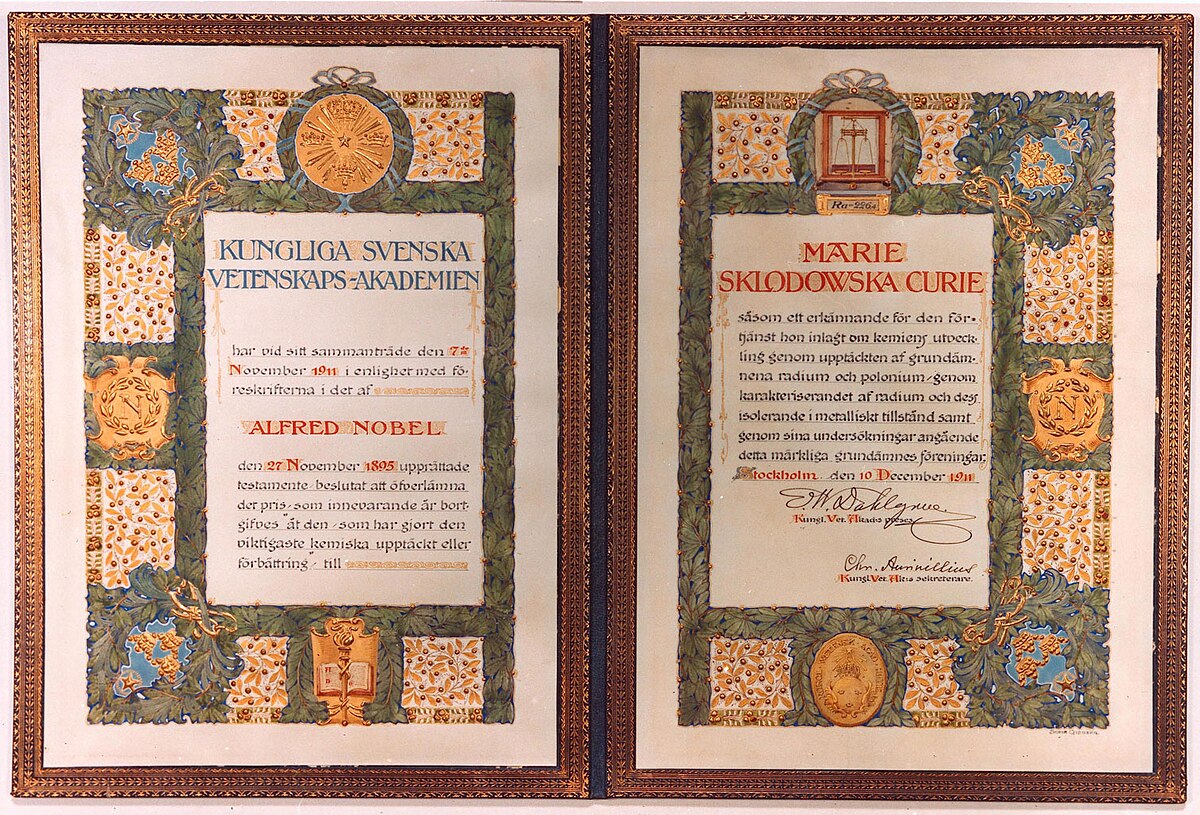 KUNGLIGA SVENSKA
VETENSKAPS-AKADEMIEN
har vid sitt sammanträde den 7de
November 1911 i enlighet med fö-
reskrifterna i det af
ALFRED NOBEL
den 27 November 1895 upprättade
testamente beslutat att öfverlämna
det pris, som innevarande år bort-
gifves "åt den, som har gjort den
viktigaste kemiska upptäckt eller
förbättring," till
N
Ra=226,4
MARIE
SKLODOWSKA CURIE
såsom ett erkännande för den för-
tjänst hon inlagt om kemiens utveck-
ling genom upptäckten af grundäm-
nena radium och polonium, genom
karakteriserandet af radium och dess
isolerande i metalliskt tillstånd samt
genom sina undersökningar angående
detta märkliga grundämnes föreningar,
Stockholm den 10 December 1911
E.W. Dahlgren.
Kungl. Vet. Akad:s præses
Chr. Aurivillius
Kungl. Vet. Ak:s sekreterare.
N